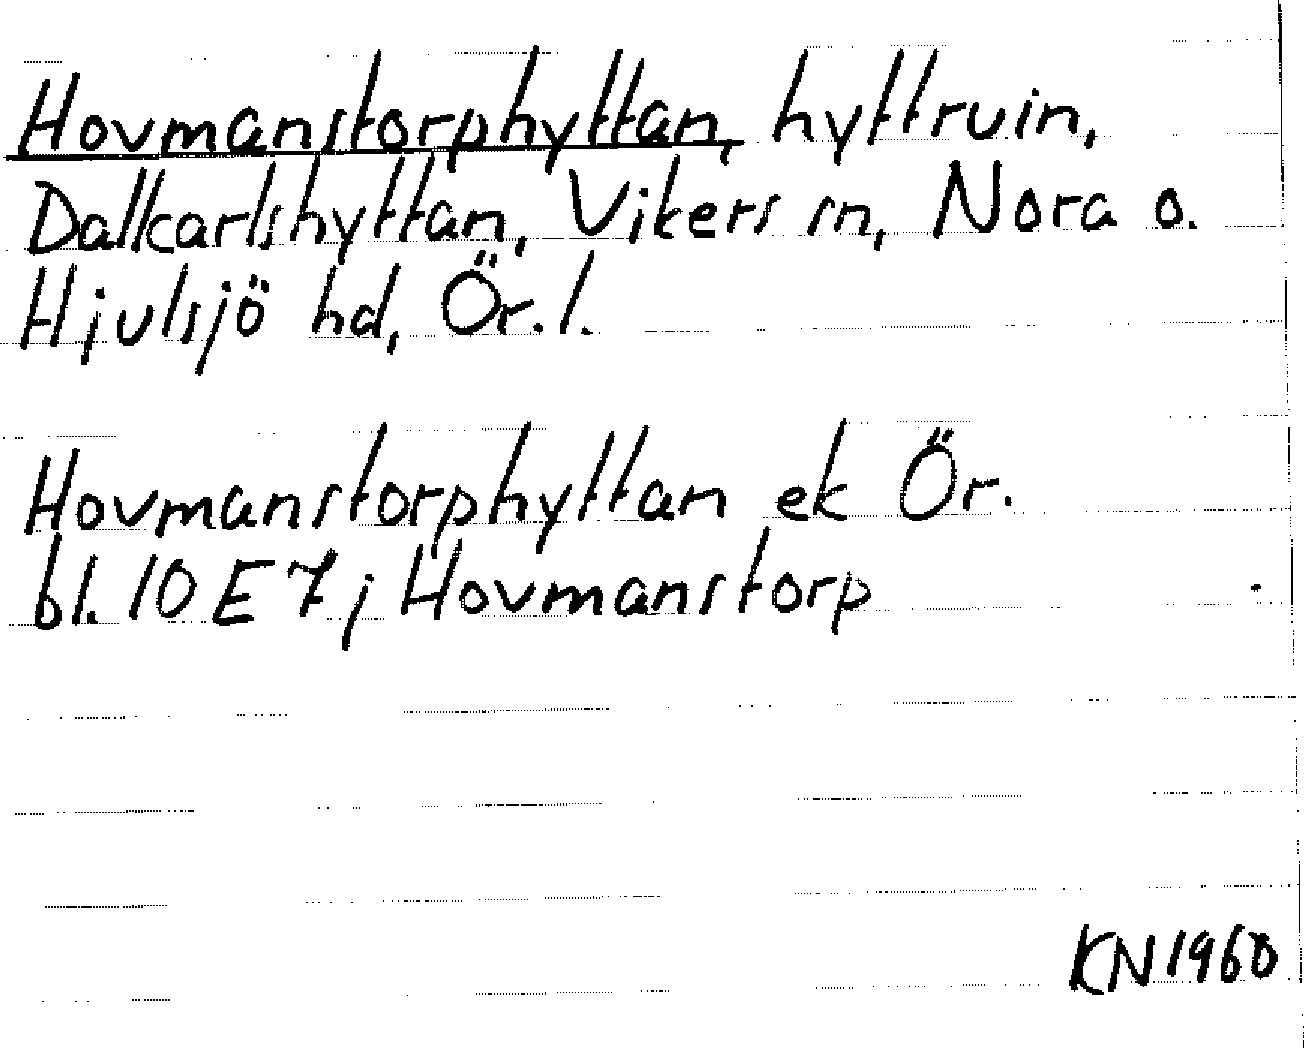 Hovmanstorphyttan, hyttruin,
Dalkarlshyttan, Vikers sn, Nora o.
Hjulsjö hd, Ör. l.
Hovmanstorphyttan ek Ör.
bl. 10 E 7 j Hovmanstorp
KN 1960